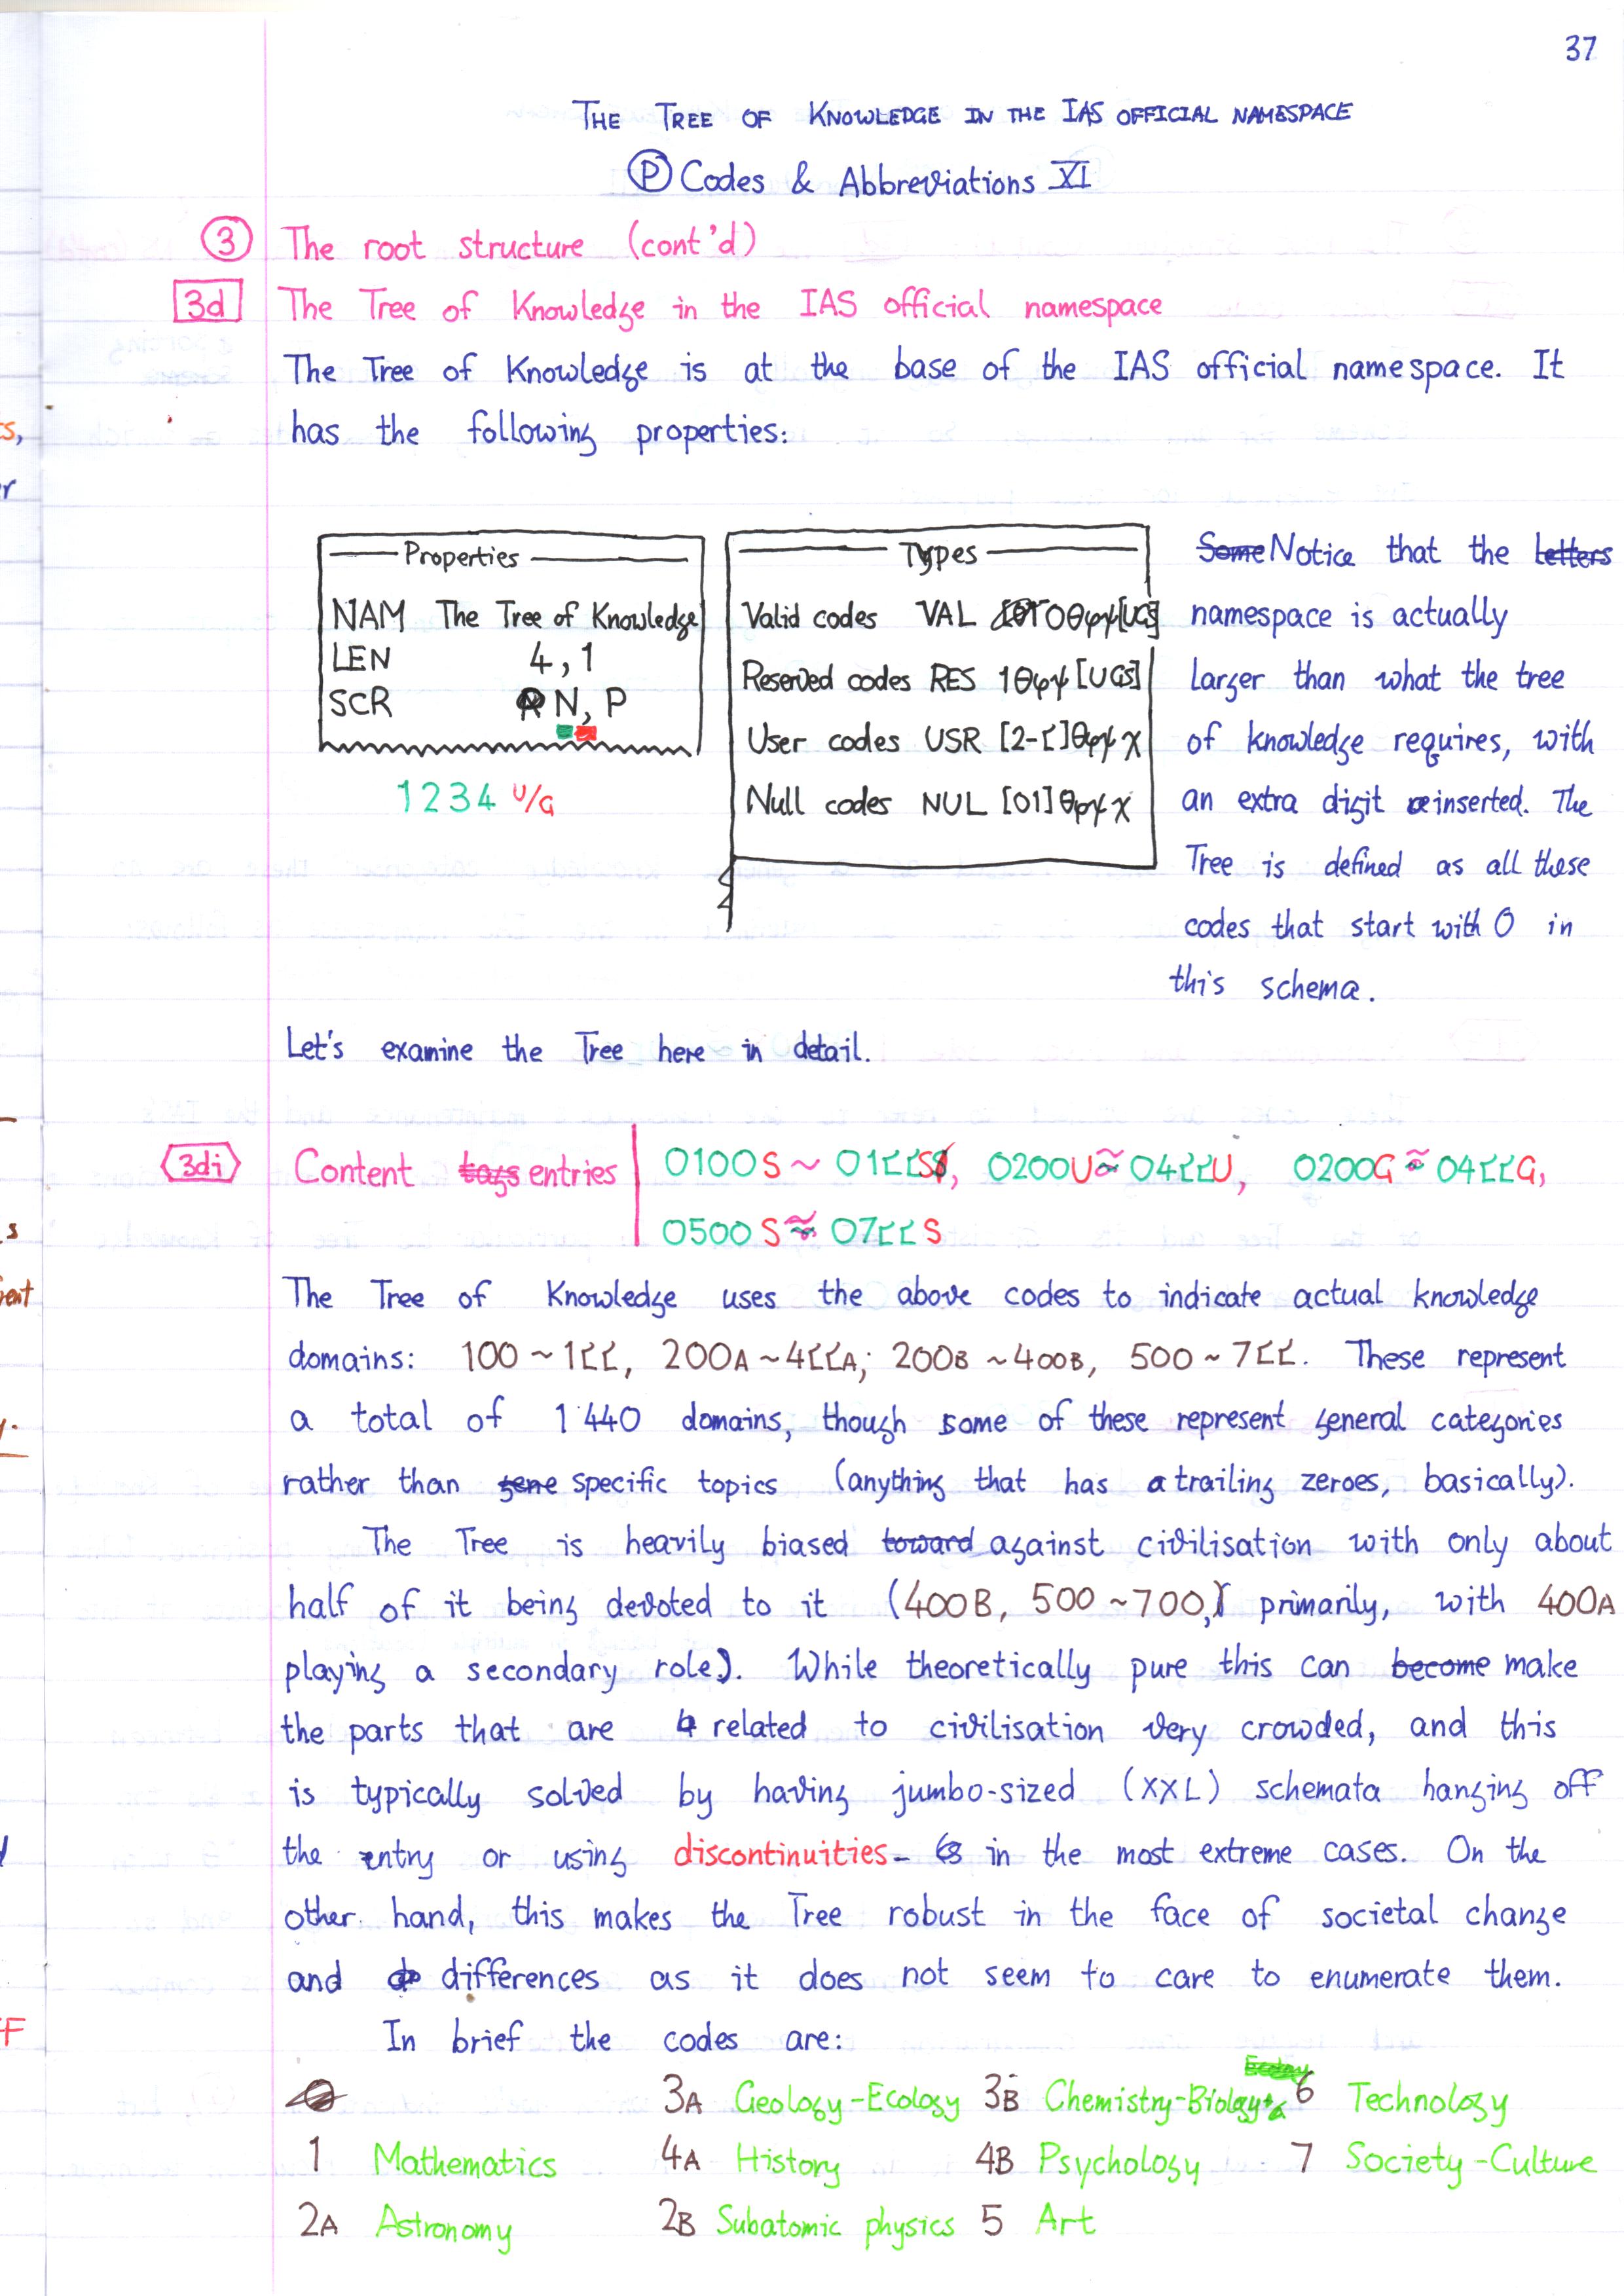 37
THE TREE OF KNOWLEDGE IN THE IAS OFFICIAL NAMESPACE
Ⓟ Codes & Abbreviations XI
③ The root structure (cont'd)
3d The Tree of Knowledge in the IAS official namespace
The Tree of Knowledge is at the base of the IAS official namespace. It
has the following properties:
Properties
NAM The Tree of Knowledge
LEN 4,1
SCR N, P
1234 U/G
Types
Valid codes VAL 0θφψ[UGS]
Reserved codes RES 1θφψ[UGS]
User codes USR [2-ʗ]θφψχ
Null codes NUL [01]θφψχ
Some Notice that the letters
namespace is actually
larger than what the tree
of knowledge requires, with
an extra digit inserted. The
Tree is defined as all these
codes that start with 0 in
this schema.
Let's examine the Tree here in detail.
3di Content tags entries
0100S ~ 01ⵎⵎS, 0200U ≈ 04ⵎⵎU, 0200G ≈ 04ⵎⵎG,
0500S ≈ 07ⵎⵎS
The Tree of Knowledge uses the above codes to indicate actual knowledge
domains: 100 ~ 1ⵎⵎ, 200A ~ 4ⵎⵎA; 200B ~ 400B, 500 ~ 7ⵎⵎ. These represent
a total of 1'440 domains, though some of these represent general categories
rather than gene specific topics (anything that has a trailing zeroes, basically).
The Tree is heavily biased toward against civilisation with only about
half of it being devoted to it (400B, 500 ~ 700,) primarily, with 400A
playing a secondary role). While theoretically pure this can become make
the parts that are related to civilisation very crowded, and this
is typically solved by having jumbo-sized (XXL) schemata hanging off
the entry or using discontinuities in the most extreme cases. On the
other hand, this makes the Tree robust in the face of societal change
and differences as it does not seem to care to enumerate them.
In brief the codes are:
Ecology
3A Geology-Ecology 3B Chemistry-Biology 6 Technology
1 Mathematics 4A History 4B Psychology 7 Society-Culture
2A Astronomy 2B Subatomic physics 5 Art